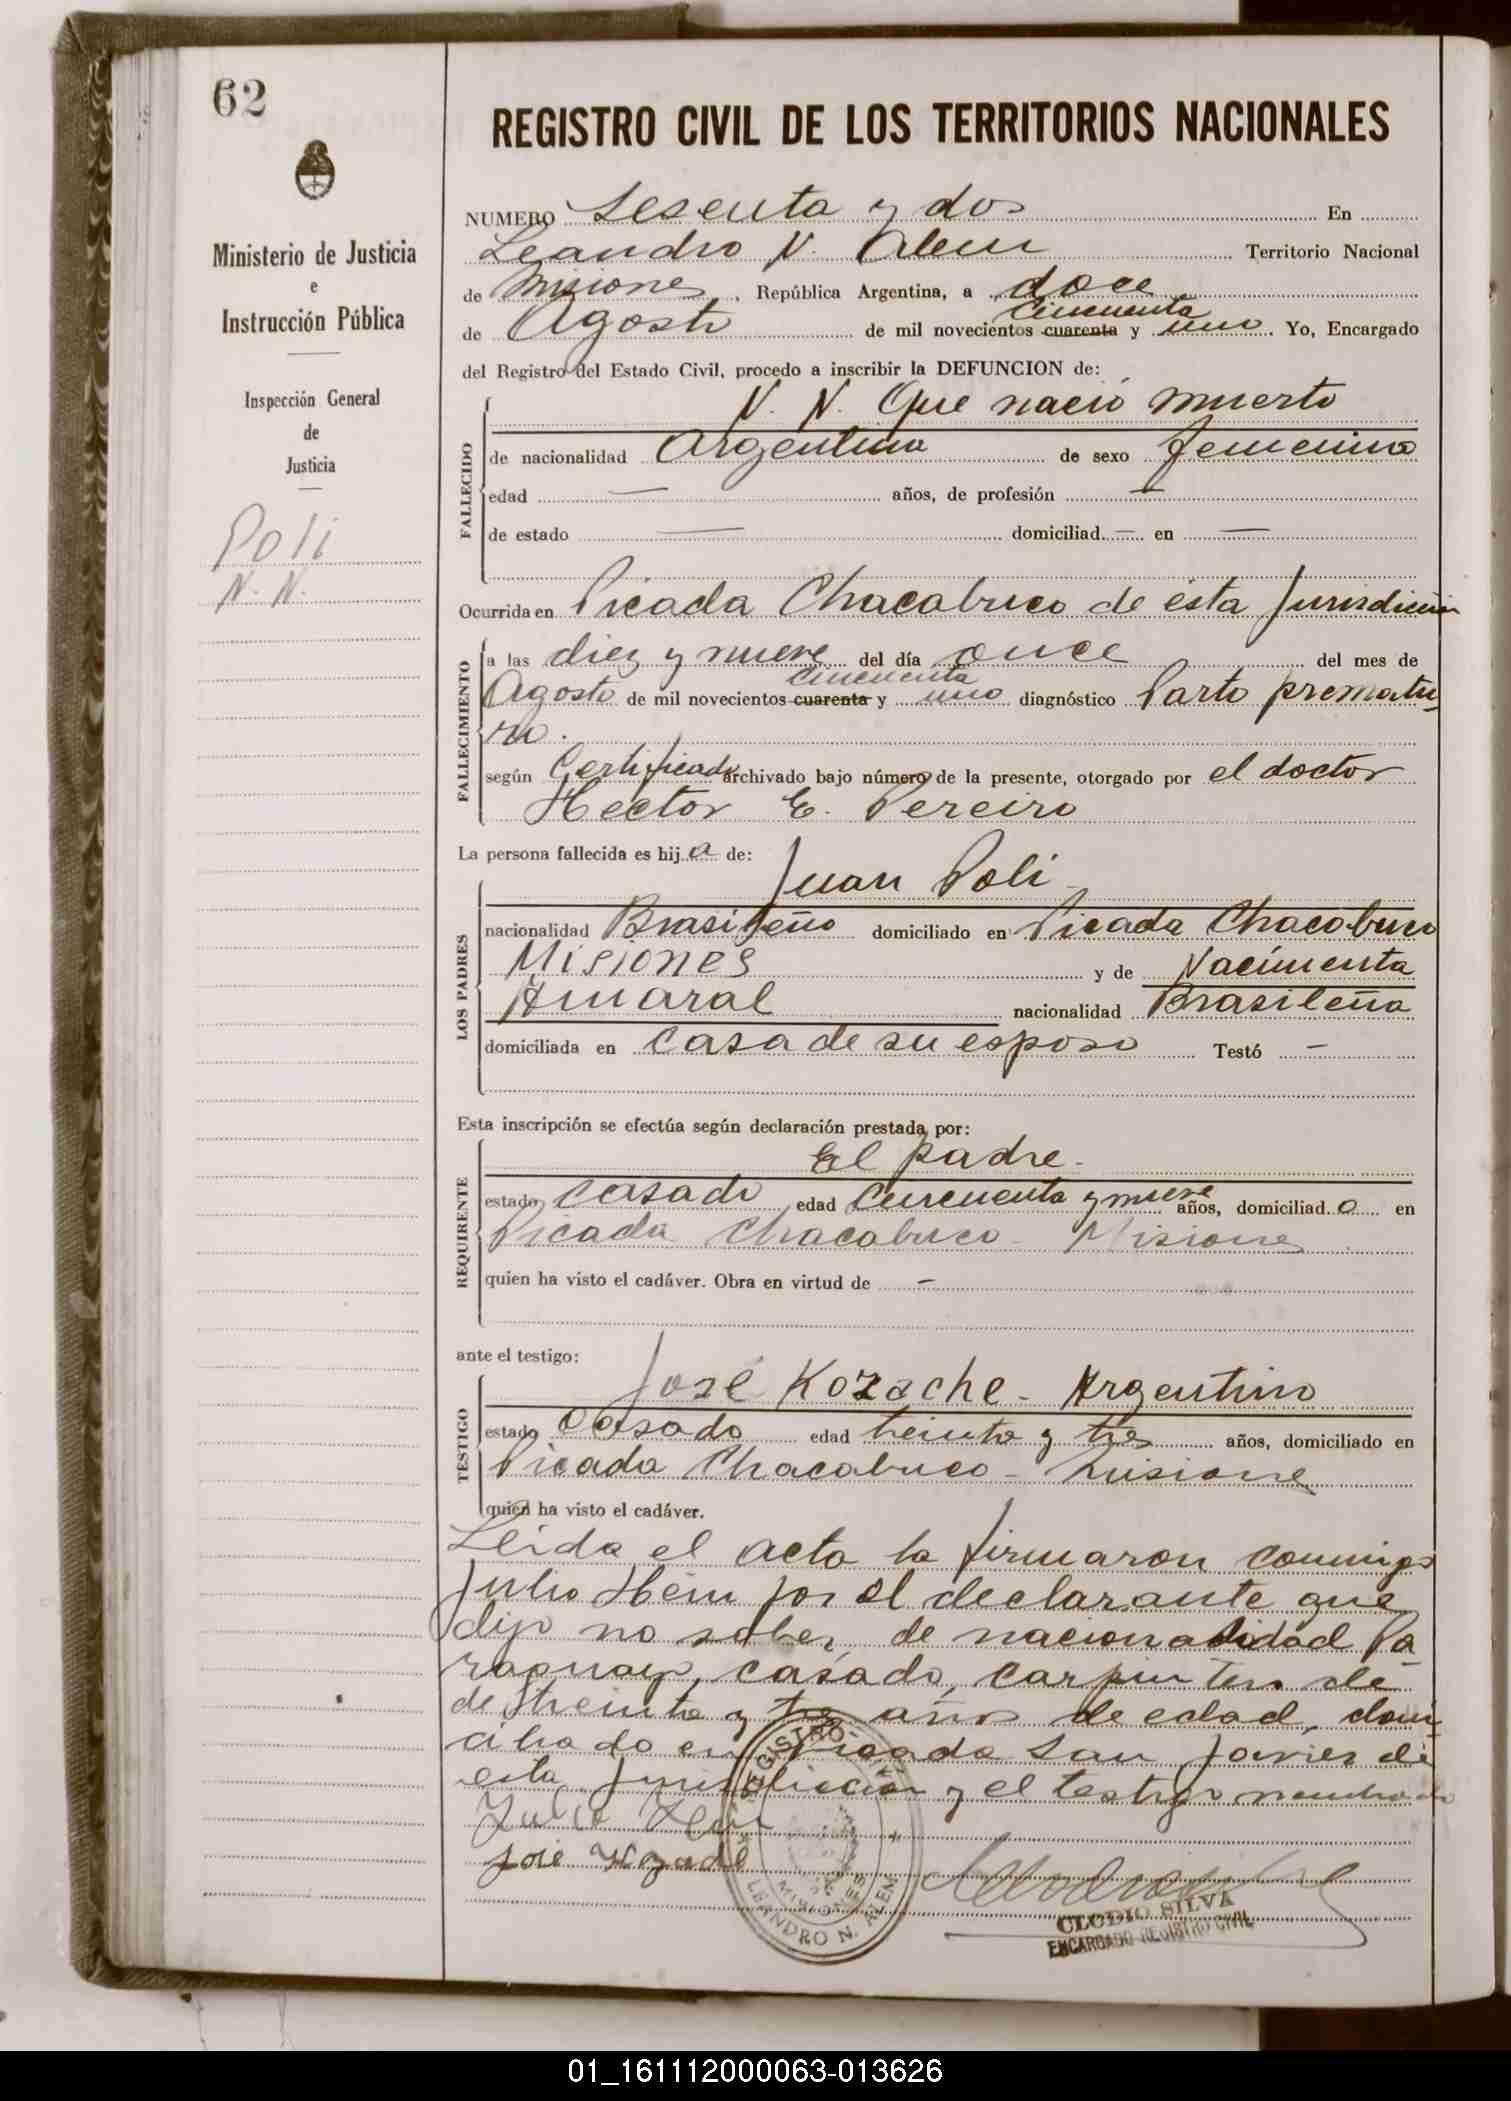 62
Ministerio de Justicia
e
Instrucción Pública
Inspección General
de
Justicia
Poli
N. N.
REGISTRO CIVIL DE LOS TERRITORIOS NACIONALES
NUMERO Sesenta y dos En
Leandro N. Alem Territorio Nacional
de Misiones, República Argentina, a doce
cincuenta
de Agosto de mil novecientos cuarenta y uno. Yo, Encargado
del Registro del Estado Civil, procedo a inscribir la DEFUNCION de:
FALLECIDO
N. N. Que nació muerto
de nacionalidad Argentina de sexo femenino
edad — años, de profesión —
de estado — domiciliad — en —
Ocurrida en Picada Chacabuco de ésta Jurisdicción
FALLECIMIENTO
a las diez y nueve del día once del mes de
cincuenta
Agosto de mil novecientos cuarenta y uno diagnóstico Parto prematu-
ro.
según Certificado archivado bajo número de la presente, otorgado por el doctor
Hector E. Pereiro
La persona fallecida es hija de:
LOS PADRES
Juan Poli
nacionalidad Brasileño domiciliado en Picada Chacabuco
Misiones y de Nacimenta
Amaral nacionalidad Brasileña
domiciliada en casa de su esposo Testó —
Esta inscripción se efectúa según declaración prestada por:
REQUIRENTE
El padre.
estado casado edad cincuenta y nueve años, domiciliado en
Picada Chacabuco - Misiones
quien ha visto el cadáver. Obra en virtud de —
ante el testigo:
TESTIGO
José Kozache - Argentino
estado casado edad treinta y tres años, domiciliado en
Picada Chacabuco - Misiones
quien ha visto el cadáver.
Leida el acta la firmaron conmigo
Julio Hein por el declarante que
dijo no saber de nacionalidad Pa-
raguayo, casado, carpintero de
de treinta y tres años de edad, domi-
ciliado en Picada San Javier de
esta Jurisdiccion y el testigo nombrado
Julio Hein
José
REGISTRO
MISIONES
LEANDRO N. ALEM
CLODIO SILVA
ENCARGADO REGISTRO CIVIL
01_161112000063-013626